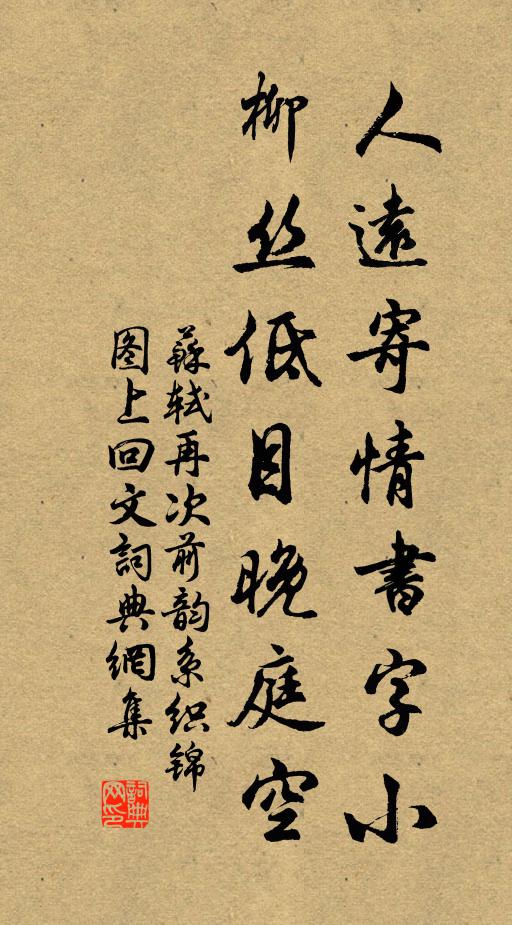 人遠寄情書字小
柳丝低目晚庭空
蘇軾再次前韵系织锦
图上回文詞典網集
詞典
网印